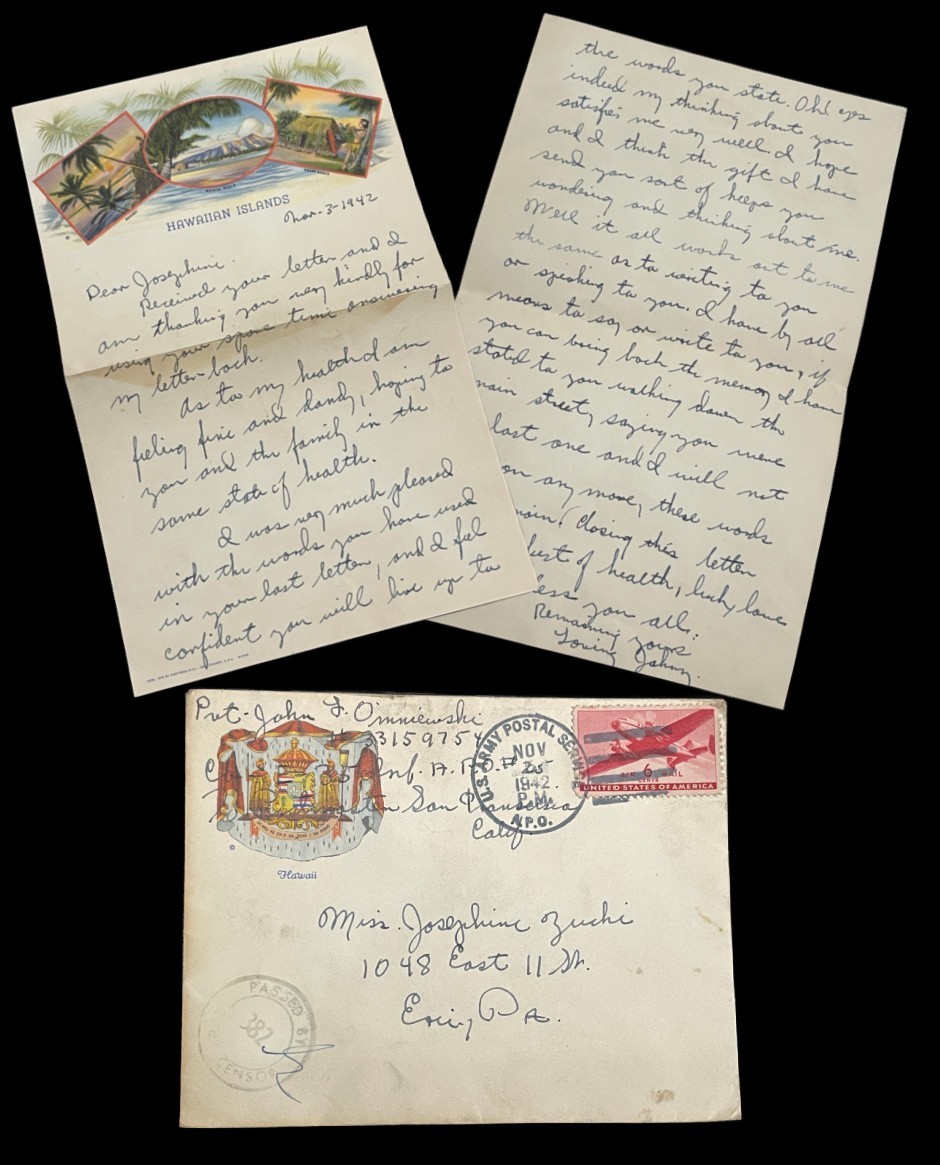 HAWAIIAN ISLANDS
Nov-3-1942
Dear Josephine.
Received your letter and I
am thanking you very kindly for
using your spare time answering
my letter back.
As to my health I am
feeling fine and dandy, hoping to
you and the family in the
same state of health.
I was very much pleased
with the words you have used
in your last letter, and I feel
confident you will live up to
the words you state. Oh! eyes
indeed my thinking about you
satisfies me very well I hope
and I think the gift I have
send you sort of keeps you
wondering and thinking about me.
Well it all works out to me
the same as to writing to you
or speaking to you. I have by all
means to say or write to you, if
you can bring back the memory I have
stated to you walking down the
main street, saying you were
last one and I will not
on any more, these words
Closing this letter
best of health, lucky love
less you all.
Remaining yours
Loving Johny.
Pvt. John F. Omniewski
# 33159754
Inf. A.P.O. # 25
San Francisco
Calif.
U.S. ARMY POSTAL SERVICE
NOV
25
1942
P.M.
A.P.O.
AIR 6 MAIL
CENTS
UNITED STATES OF AMERICA
Hawaii
Miss. Josephine Zuchi
1048 East 11 St.
Erie, Pa.
PASSED BY
382
CENSOR